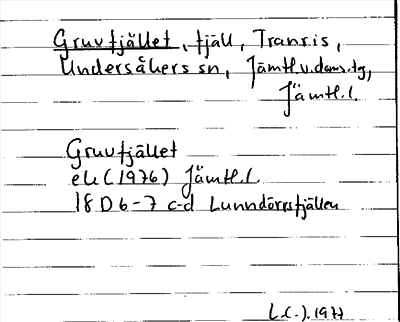 Gruvfjället, fjäll, Tranris,
Undersåkers sn, Jämtl.v.doms.tg,
Jämtl.l.
Gruvfjället
ek (1976) Jämtl.l.
18 D 6-7 c-d Lunndörrsfjällen
L.(.).1977